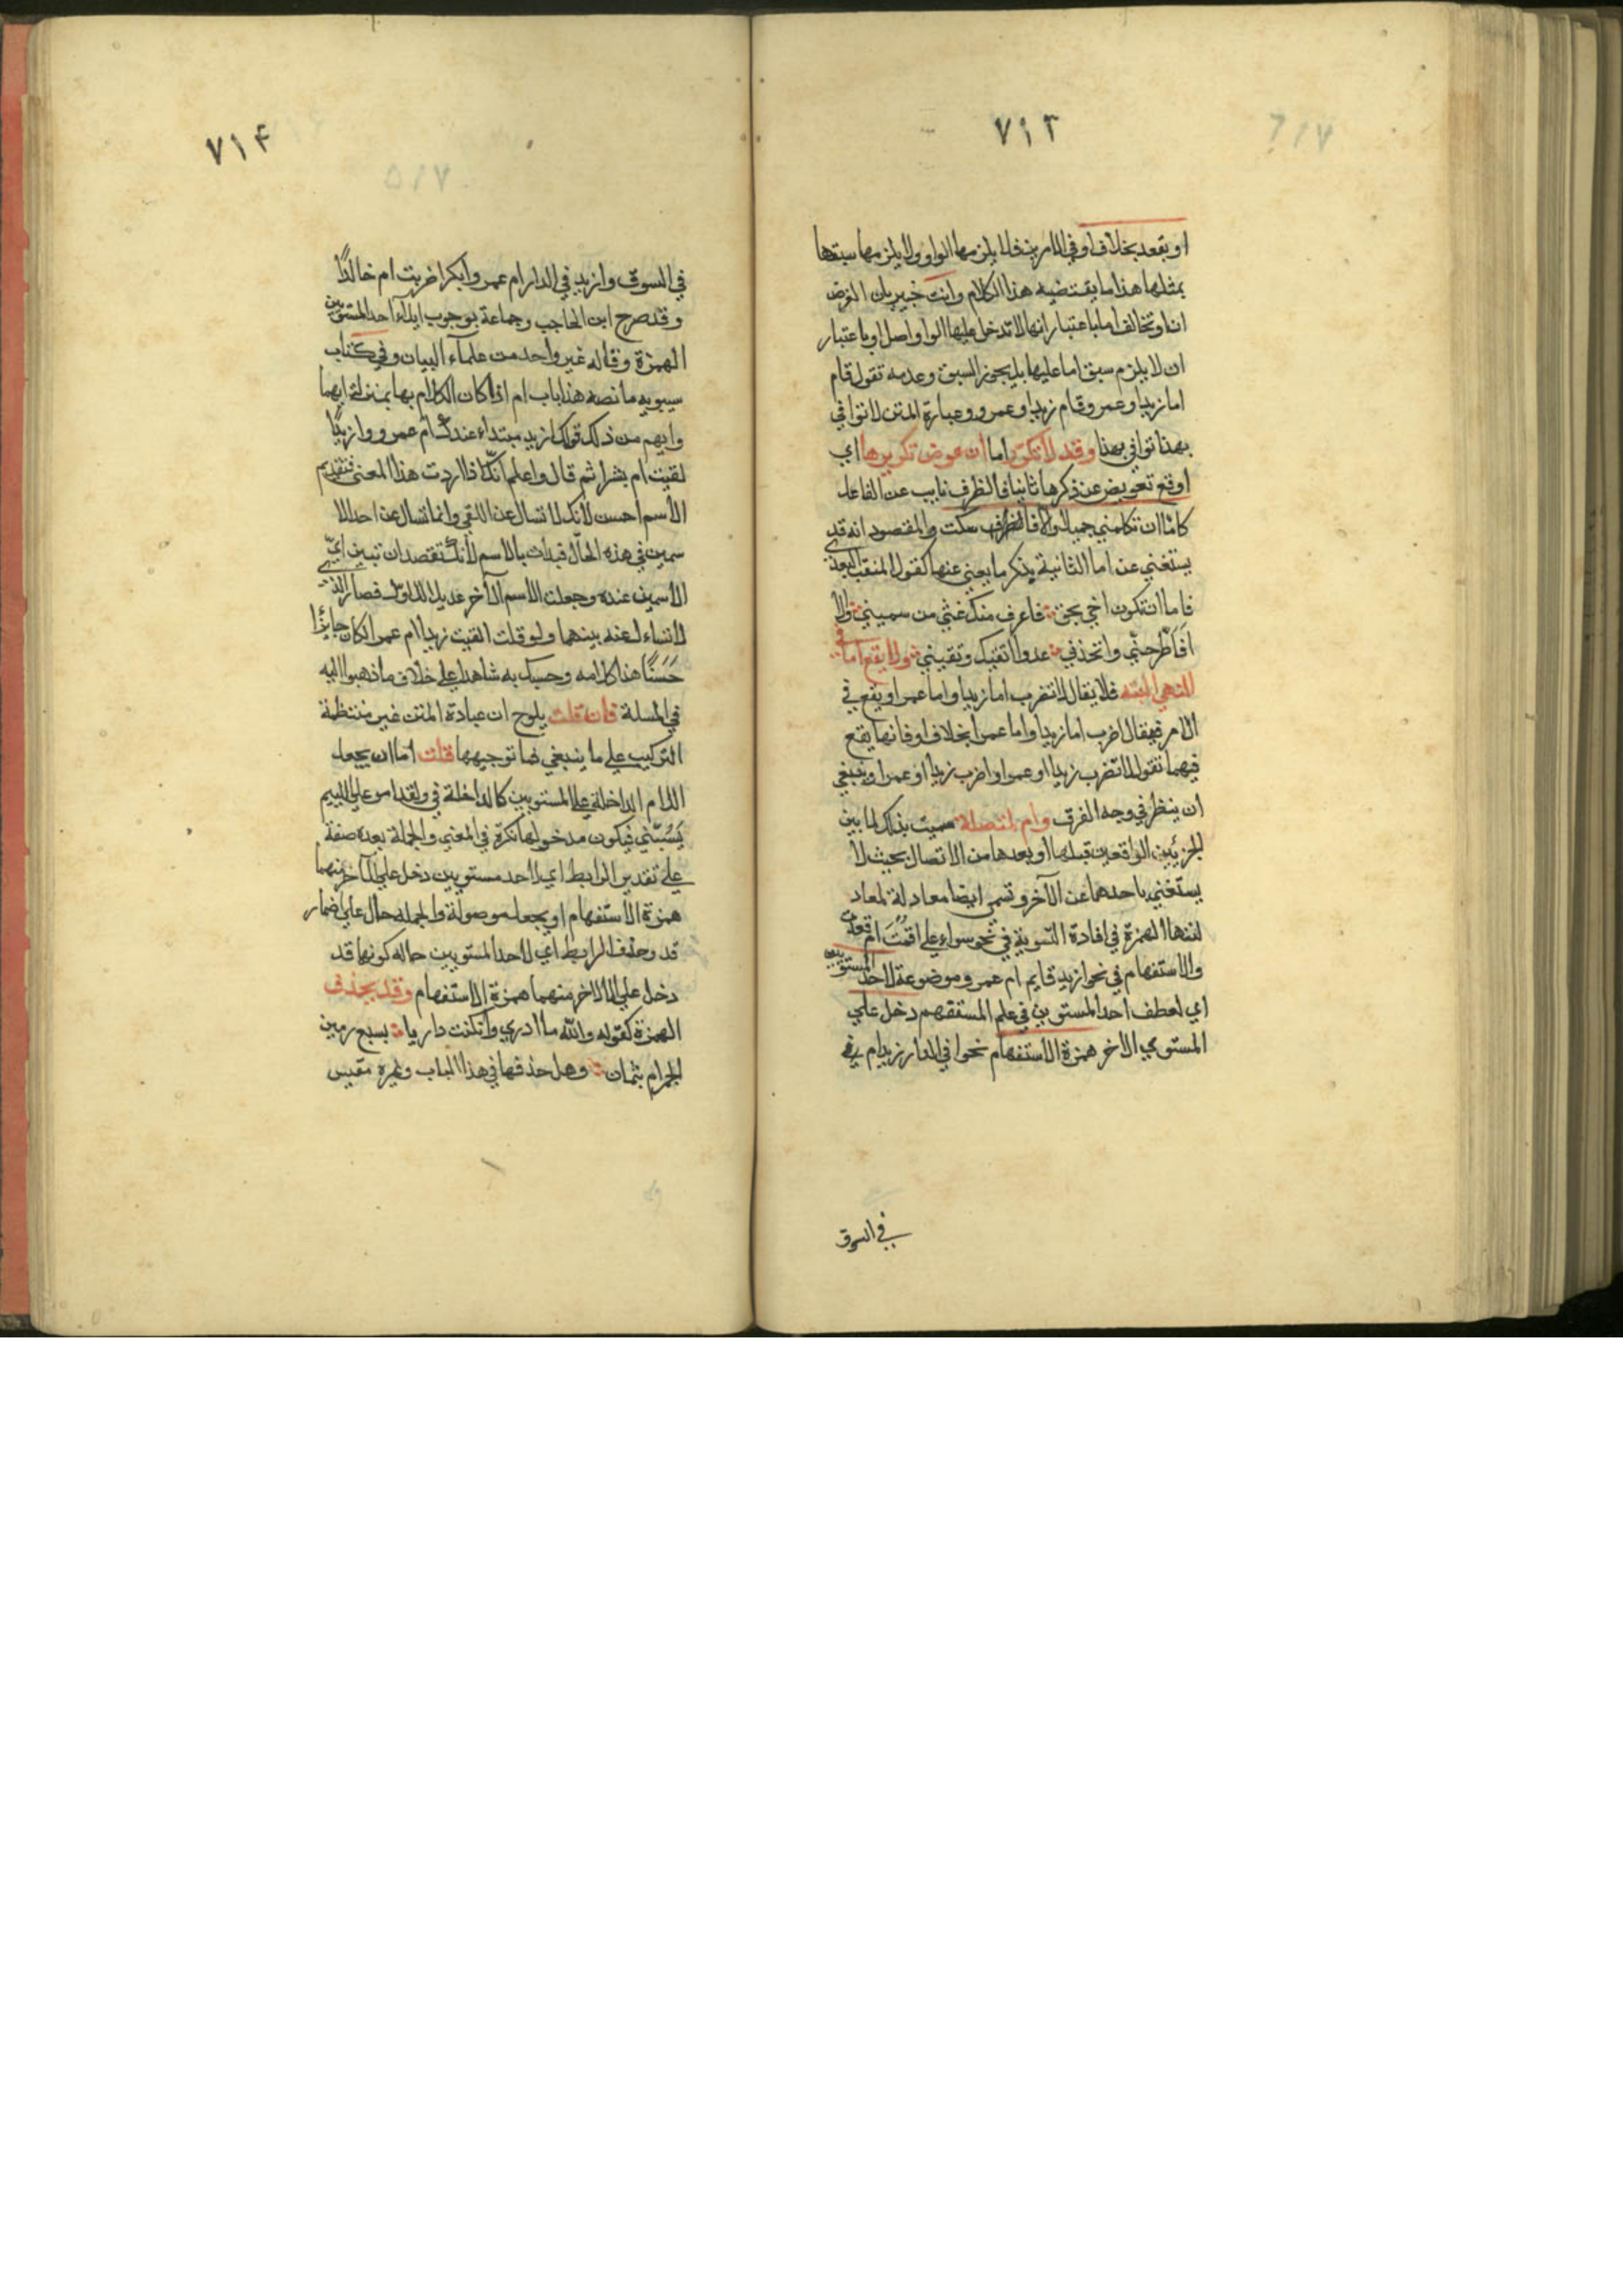 ٧١٣
او يقعد بخلاف او في الامرين فلا يلزمها الواو ولا يلزمها سبقها
بمثلها هذا ما يقتضيه هذا الكلام وانت خبير بان الغرض
ان او تخالف اما باعتبار انها لا تدخل عليها الواو اصلا وباعتبار
ان لا يلزم سبق اما عليها بل يجوز السبق وعدمه تقول قام
اما زيد او عمرو وقام زيد او عمرو وعبارة المتن لا توافي
بهذا توافي بهذا وقد لا تكرّر اما ان عوض تكريرها اي
اوقع تعويض عن ذكرها ثانيا فالظرف نايب عن الفاعل
كامّا ان تكلمني جميلا والا فاسكت والمقصود انه قد
يستغني عن اما الثانية بذكر ما يغني عنها كقول المثقب العبدي
فاما ان تكون اخي بحق فاعرف منك غثي من سميني والا
فاطّرحنّي واتخذني عدوا اتقيك وتتقيني ولا يقع اما في
النهي البتّه فلا يقال لا تضرب اما زيدا واما عمرا ويقع في
الامر فيقال اضرب اما زيدا واما عمرا بخلاف او فانها يقع
فيهما تقول لا تضرب زيدا او عمرا واضرب زيدا او عمرا وينبغي
ان ينظر في وجه الفرق وام المتصلة سميت بذلك لما بين
الجزئين الواقعين قبلها وبعدها من الاتصال بحيث لا
يستغني باحدهما عن الآخر وتسمى ايضا معادلة لمعاد
لتها الهمزة في افادة التسوية في نحو سواء علي اقمت ام قعدت
والاستفهام في نحو ازيد قايم ام عمرو وموضوعة لاحد المستويين
اي لعطف احد المستويين في علم المستفهم دخل علي
المستوي الاخر همزة الاستفهام نحو افي الدار زيد ام في
في السوق
٧١۴
في السوق وازيد في الدار ام عمرو وابكرا ضربت ام خالدًا
وقد صرح ابن الحاجب وجماعة بوجوب ايلاء احد المستويين
الهمزة وقاله غير واحد من علماء البيان وفي كتاب
سيبويه ما نصه هذا باب ام اذا كان الكلام بها بمنزلة ايهما
وايهم من ذلك قولك ازيد مبتداء عندك ام عمرو وازيدًا
لقيت ام بشرا ثم قال واعلم انّك اذا اردت هذا المعنى فتقديم
الاسم احسن لانك لا تسال عن اللقي وانما تسال عن احد الا
سمين في هذه الحال فبدات بالاسم لانك تقصد ان تبين ايّ
الاسمين عنده وجعلت الاسم الآخر عديلا للاول فصار الذي
لا تساءل عنه بينهما ولو قلت القيت زيدا ام عمرا لكان جايزًا
حَسَنًا هذا كلامه وحسبك به شاهدا علي خلاف ما ذهبوا اليه
في المسلة فان قلت يلوح ان عبادة المتن غير منتظمة
التركيب علي ما ينبغي فما توجيهها قلت اما ان يجعل
اللام الداخلة علي المستويين كالداخلة في ولقد امر علي اللييم
يَسُبّني فيكون مدخولها نكرة في المعني والجملة بعده صفة
علي تقدير الرابط اي لاحد مستويين دخل علي الآخر منهما
همزة الاستفهام او يجعل موصولة والجمله حال علي اضمار
قد وحذف الرابط اي لاحد المستويين حاله كونها قد
دخل علي الاخر منهما همزة الاستفهام وقد يحذف
الهمزة كقوله والله ما ادري وان كنت داريا بسبع رمين
الجمر ام بثمان وهل حذفها في هذا الباب وغيره مقيس